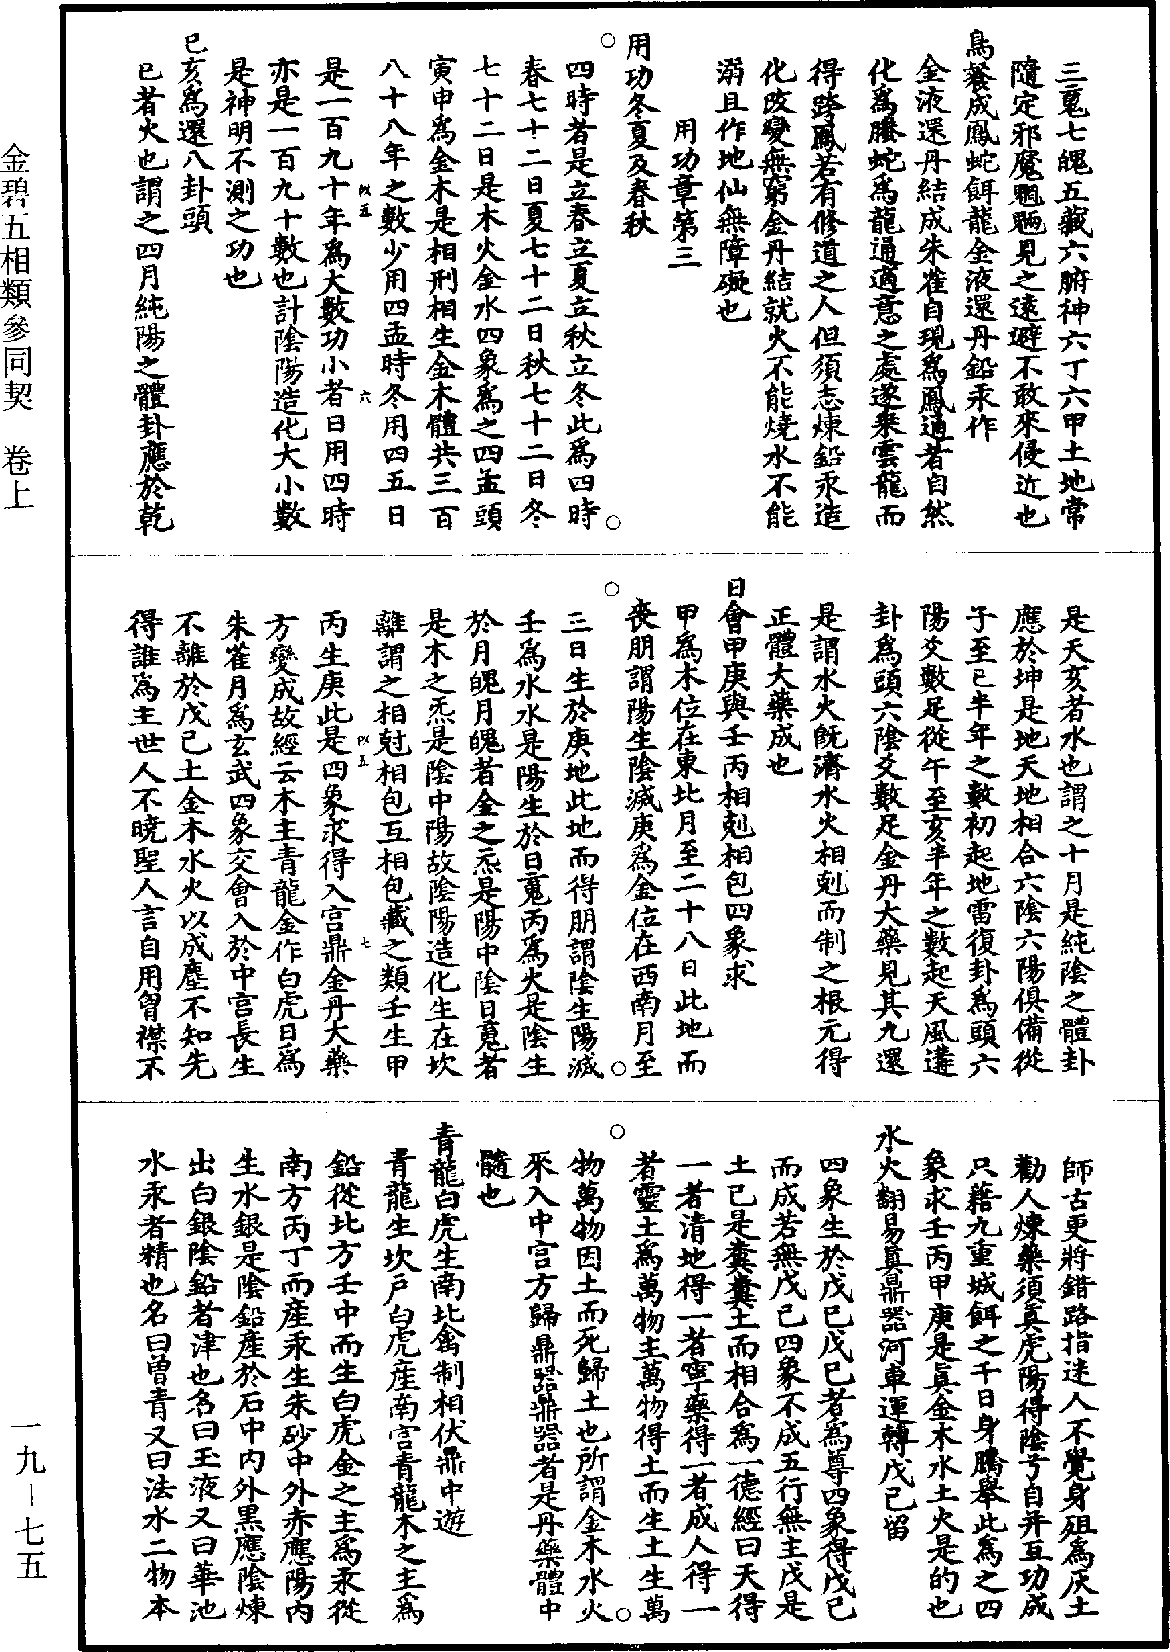 三䰟七魄五藏六腑神六丁六甲土地常
隨定邪魔魍魎見之遠避不敢來侵近也
鳥養成鳳蛇餌龍金液還丹鉛汞作
金液還丹結成朱雀自現爲鳳通者自然
化爲騰蛇爲龍通適意之處遂乘雲龍而
得跨鳳若有修道之人但須志煉鉛汞造
化改變無窮金丹結就火不能燒水不能
溺且作地仙無障礙也
用功章第三
用功冬夏及春秋
四時者是立春立夏立秋立冬此爲四時
春七十二日夏七十二日秋七十二日冬
七十二日是木火金水四象爲之四孟頭
寅申爲金木是相刑相生金木體共三百
八十八年之數少用四孟時冬用四五日
似五 六
是一百九十年爲大數功小者日用四時
亦是一百九十數也計陰陽造化大小數
是神明不測之功也
巳亥爲還八卦頭
巳者火也謂之四月純陽之體卦應於乾
是天亥者水也謂之十月是純陰之體卦
應於坤是地天地相合六陰六陽俱備從
子至巳半年之數初起地雷復卦爲頭六
陽爻數足從午至亥半年之數起天風遘
卦爲頭六陰爻數足金丹大藥見其九還
是謂水火旣濟水火相剋而制之根元得
正體大藥成也
日會甲庚與壬丙相剋相包四象求
甲爲木位在東北月至二十八日此地而
喪朋謂陽生陰滅庚爲金位在西南月至
三日生於庚地此地而得朋謂陰生陽滅
壬爲水水是陽生於日䰟丙爲火是陰生
於月魄月魄者金之炁是陽中陰日䰟者
是木之炁是陰中陽故陰陽造化生在坎
離謂之相尅相包互相包藏之類壬生甲
似五 七
丙生庚此是四象求得入宫鼎金丹大藥
方變成故經云木主青龍金作白虎日爲
朱雀月爲玄武四象交會入於中宫長生
不離於戊己土金木水火以成塵不知先
得誰爲主世人不曉聖人言自用胷襟不
師古更將錯路指迷人不覺身殂爲灰土
勸人煉藥須真虎陽得陰亏自并互功成
只藉九重城餌之千日身騰舉此爲之四
象求壬丙甲庚是真金木水土火是的也
水火翻易真鼎器河車運轉戊己留
四象生於戊巳戊巳者爲尊四象得戊己
而成若無戊己四象不成五行無主戊是
土己是糞糞土而相合爲一德經曰天得
一者清地得一者寧藥得一者成人得一
者靈土爲萬物主萬物得土而生土生萬
物萬物因土而死歸土也所謂金木水火
來入中宫方歸鼎器鼎器者是丹藥體中
髓也
青龍白虎生南北禽制相伏鼎中遊
青龍生坎戸白虎産南宫青龍木之主爲
鉛從北方壬中而生白虎金之主爲汞從
南方丙丁而産汞生朱砂中外赤應陽内
生水銀是陰鉛産於石中内外黒應陰煉
出白銀陰鉛者津也名曰玉液又曰華池
水汞者精也名曰曾青又曰法水二物本
金碧五相類參同契　卷上
一九－七五